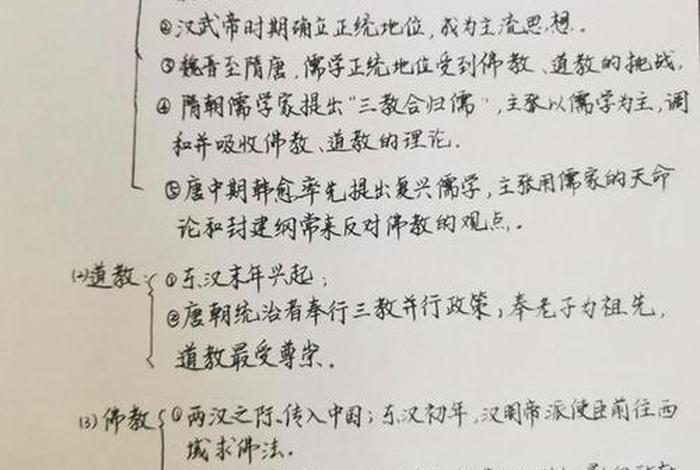 ②汉武帝时期确立正统地位,成为主流思想.
③魏晋至隋唐,儒学正统地位受到佛教、道教的挑战.
④隋朝儒学家提出"三教合归儒",主张以儒学为主,调
和并吸收佛教、道教的理论.
⑤唐中期韩愈率先提出复兴儒学,主张用儒家的天命
论和封建纲常来反对佛教的观点.
(2)道教:①东汉末年兴起;
②唐朝统治者奉行三教并行政策,奉老子为祖先,
道教最受尊崇.
(3)佛教①两汉之际、传入中国;东汉初年,汉明帝派使臣前往西
域求佛法.